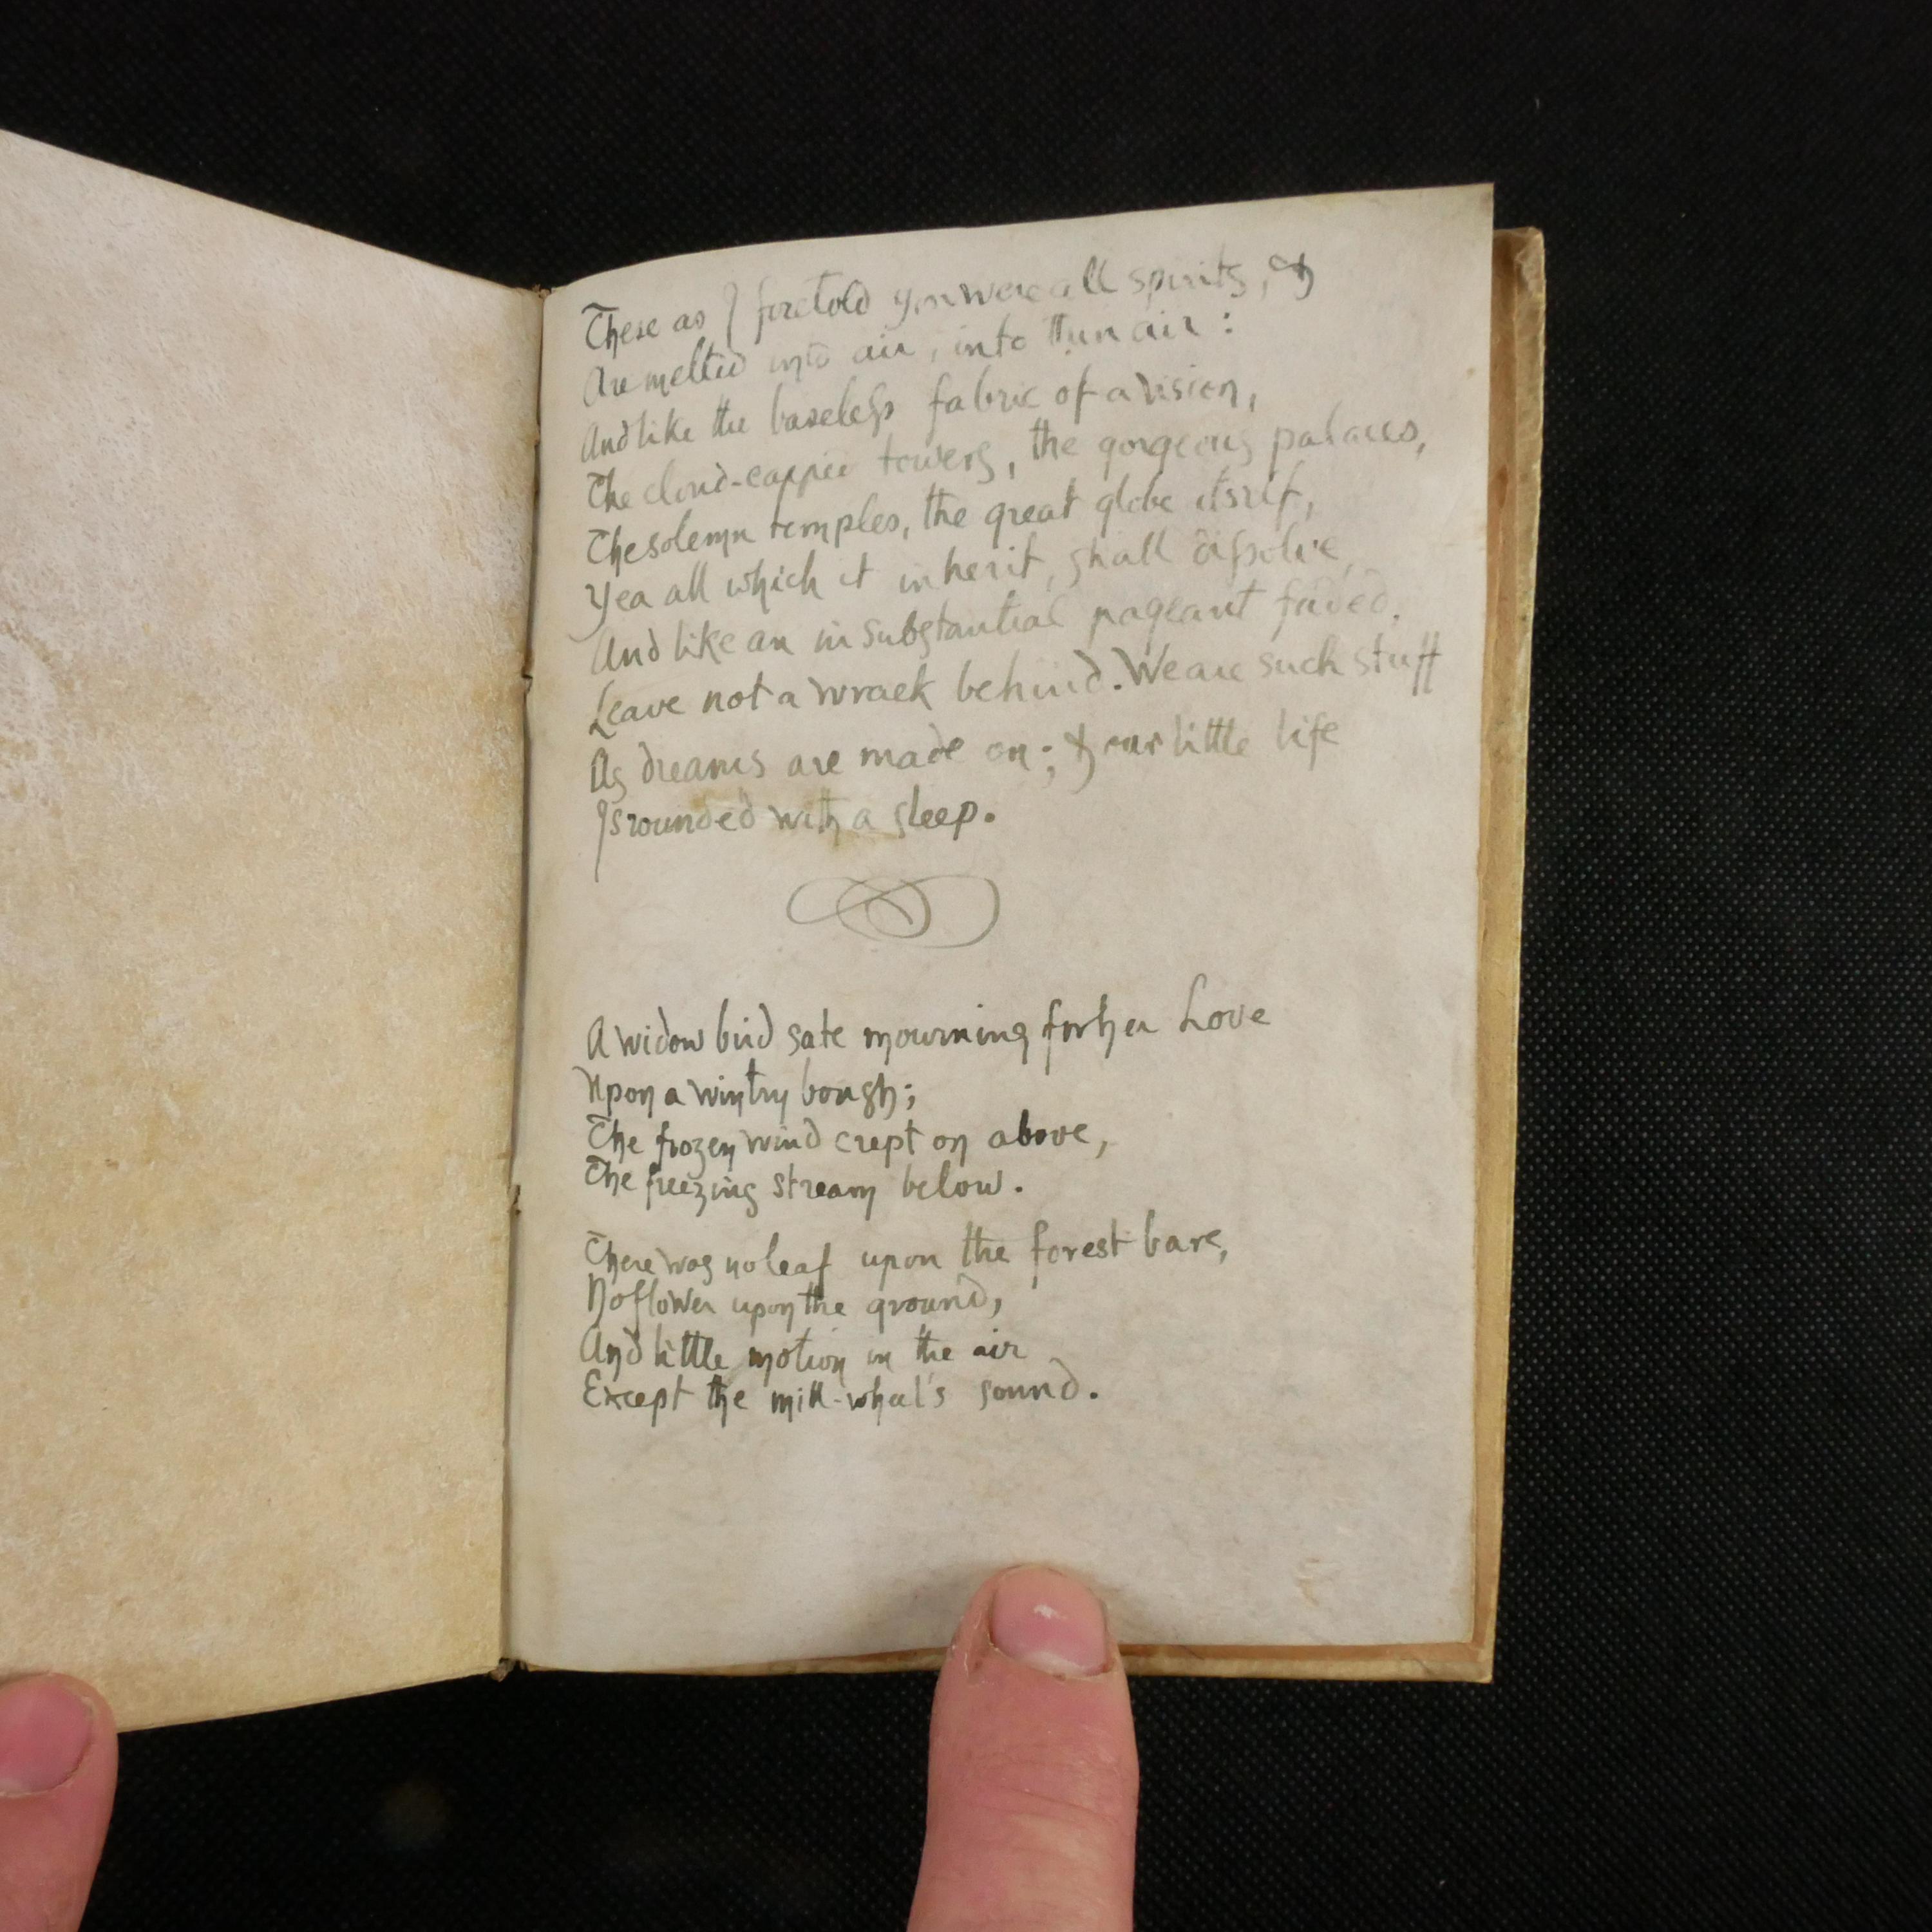 These as I foretold you were all spirits, &
Are melted into air, into thin air:
And like the baseless fabric of a vision,
The cloud-capped towers, the gorgeous palaces,
The solemn temples, the great globe itself,
Yea all which it inherit, shall dissolve,
And like an insubstantial pageant faded,
Leave not a wrack behind. We are such stuff
As dreams are made on; & our little life
Is rounded with a sleep.
A widow bird sate mourning for her Love
Upon a wintry bough;
The frozen wind crept on above,
The freezing stream below.
There was no leaf upon the forest bare,
No flower upon the ground,
And little motion in the air
Except the mill-wheel's sound.